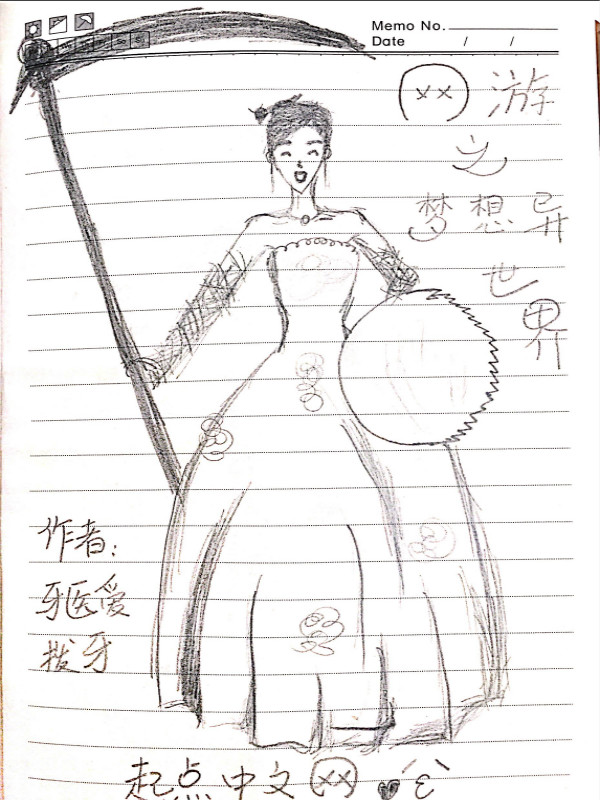 Memo No.
Date / /
游
之
梦想异
世
界
作者：
牙医爱
拔牙
起点中文